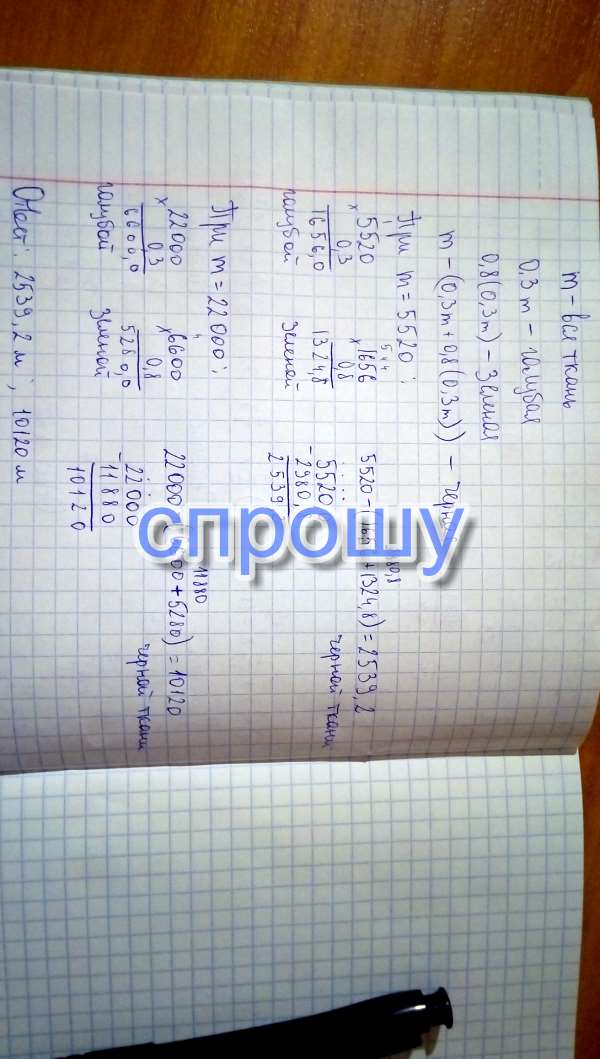 m - вся ткань
0,3 m - голубая
0,8(0,3m) - зеленая
m - (0,3m + 0,8(0,3m)) -
При m = 5520:
5520
x 0,3
1656,0
голубой
5 4 4
x 1656
0,8
1324,8
зеленой
5520 - + 1324,8) = 2539,2
черной ткани
5520
- 2980,
2539
При m = 22000:
22000
x 0,3
6600,0
голубой
4
x 6600
0,8
5280,0
зеленой
11880
22000 + 5280) = 10120
черной ткани
22000
- 11880
10120
Ответ: 2539,2 м; 10120 м
спрошу